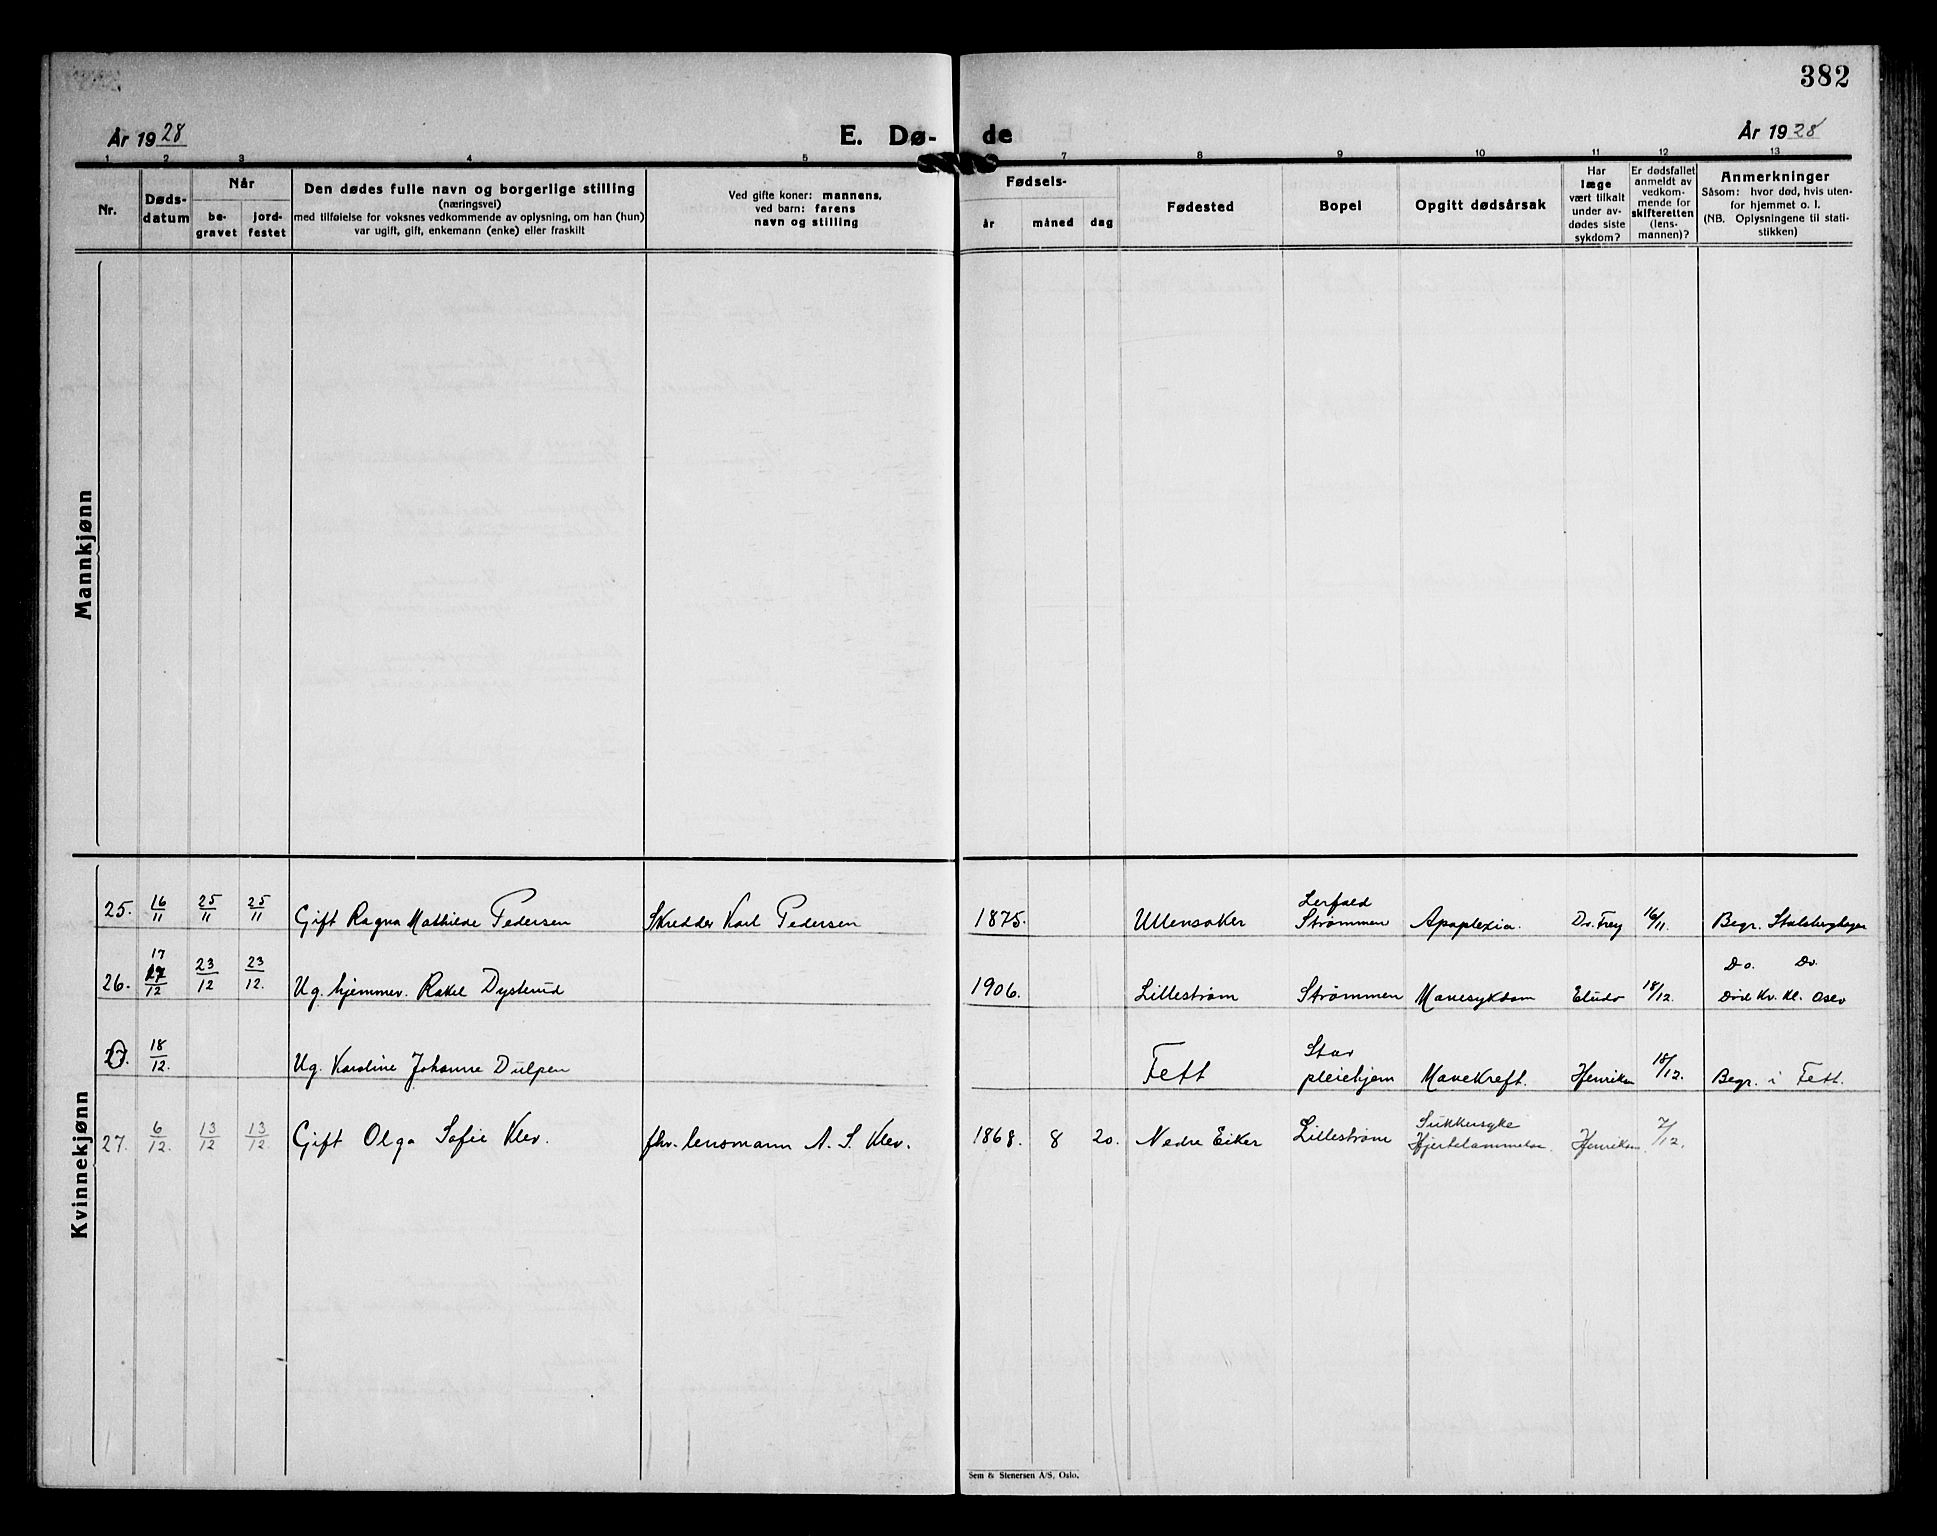 382
År 1928 E. Dø- de År 1928
1 2 3 4 5 7 8 9 10 11 12 13
Nr.
Døds-
datum
Når
be-
gravet
jord-
festet
Den dødes fulle navn og borgerlige stilling
(næringsvei)
med tilføielse for voksnes vedkommende av oplysning, om han (hun)
var ugift, gift, enkemann (enke) eller fraskilt
Ved gifte koner: mannens,
ved barn: farens
navn og stilling
Fødsels-
år måned dag
Fødested
Bopel
Opgitt dødsårsak
Har
læge
vært tilkalt
under av-
dødes siste
sykdom?
Er dødsfallet
anmeldt av
vedkom-
mende for
skifteretten
(lens-
mannen)?
Anmerkninger
Såsom: hvor død, hvis uten-
for hjemmet o. l.
(NB. Oplysningene til stati-
stikken)
Mannkjønn
Kvinnekjønn
25. 16/11 25/11 25/11 Gift Ragna Mathilde Pedersen Skredder Karl Pedersen 1875. Ullensaker Lerfald
Strømmen Apoplexia. Dr. Frey 16/11. Begr. Stalsberghagen
26. 17/12 23/12 23/12. Ug. hjemmev. Rakel Dysterud 1906. Lillestrøm Strømmen Mavesykdom 18/12. Do. Do.
Død Kv. Kl. Oslo
27. 18/12. Ug. Karoline Johanne Dulpen Fett
pleiehjem Mavekreft. Henriksen 18/12. Begr. i Fett.
27. 6/12. 13/12 13/12 Gift Olga Sofie Klev. fhv. lensmann A. S. Klev. 1868. 8 20. Nedre Eiker Lillestrøm Sukkersyke
Hjertelammelse. Henriksen. 7/12.
Sem & Stenersen A/S, Oslo.